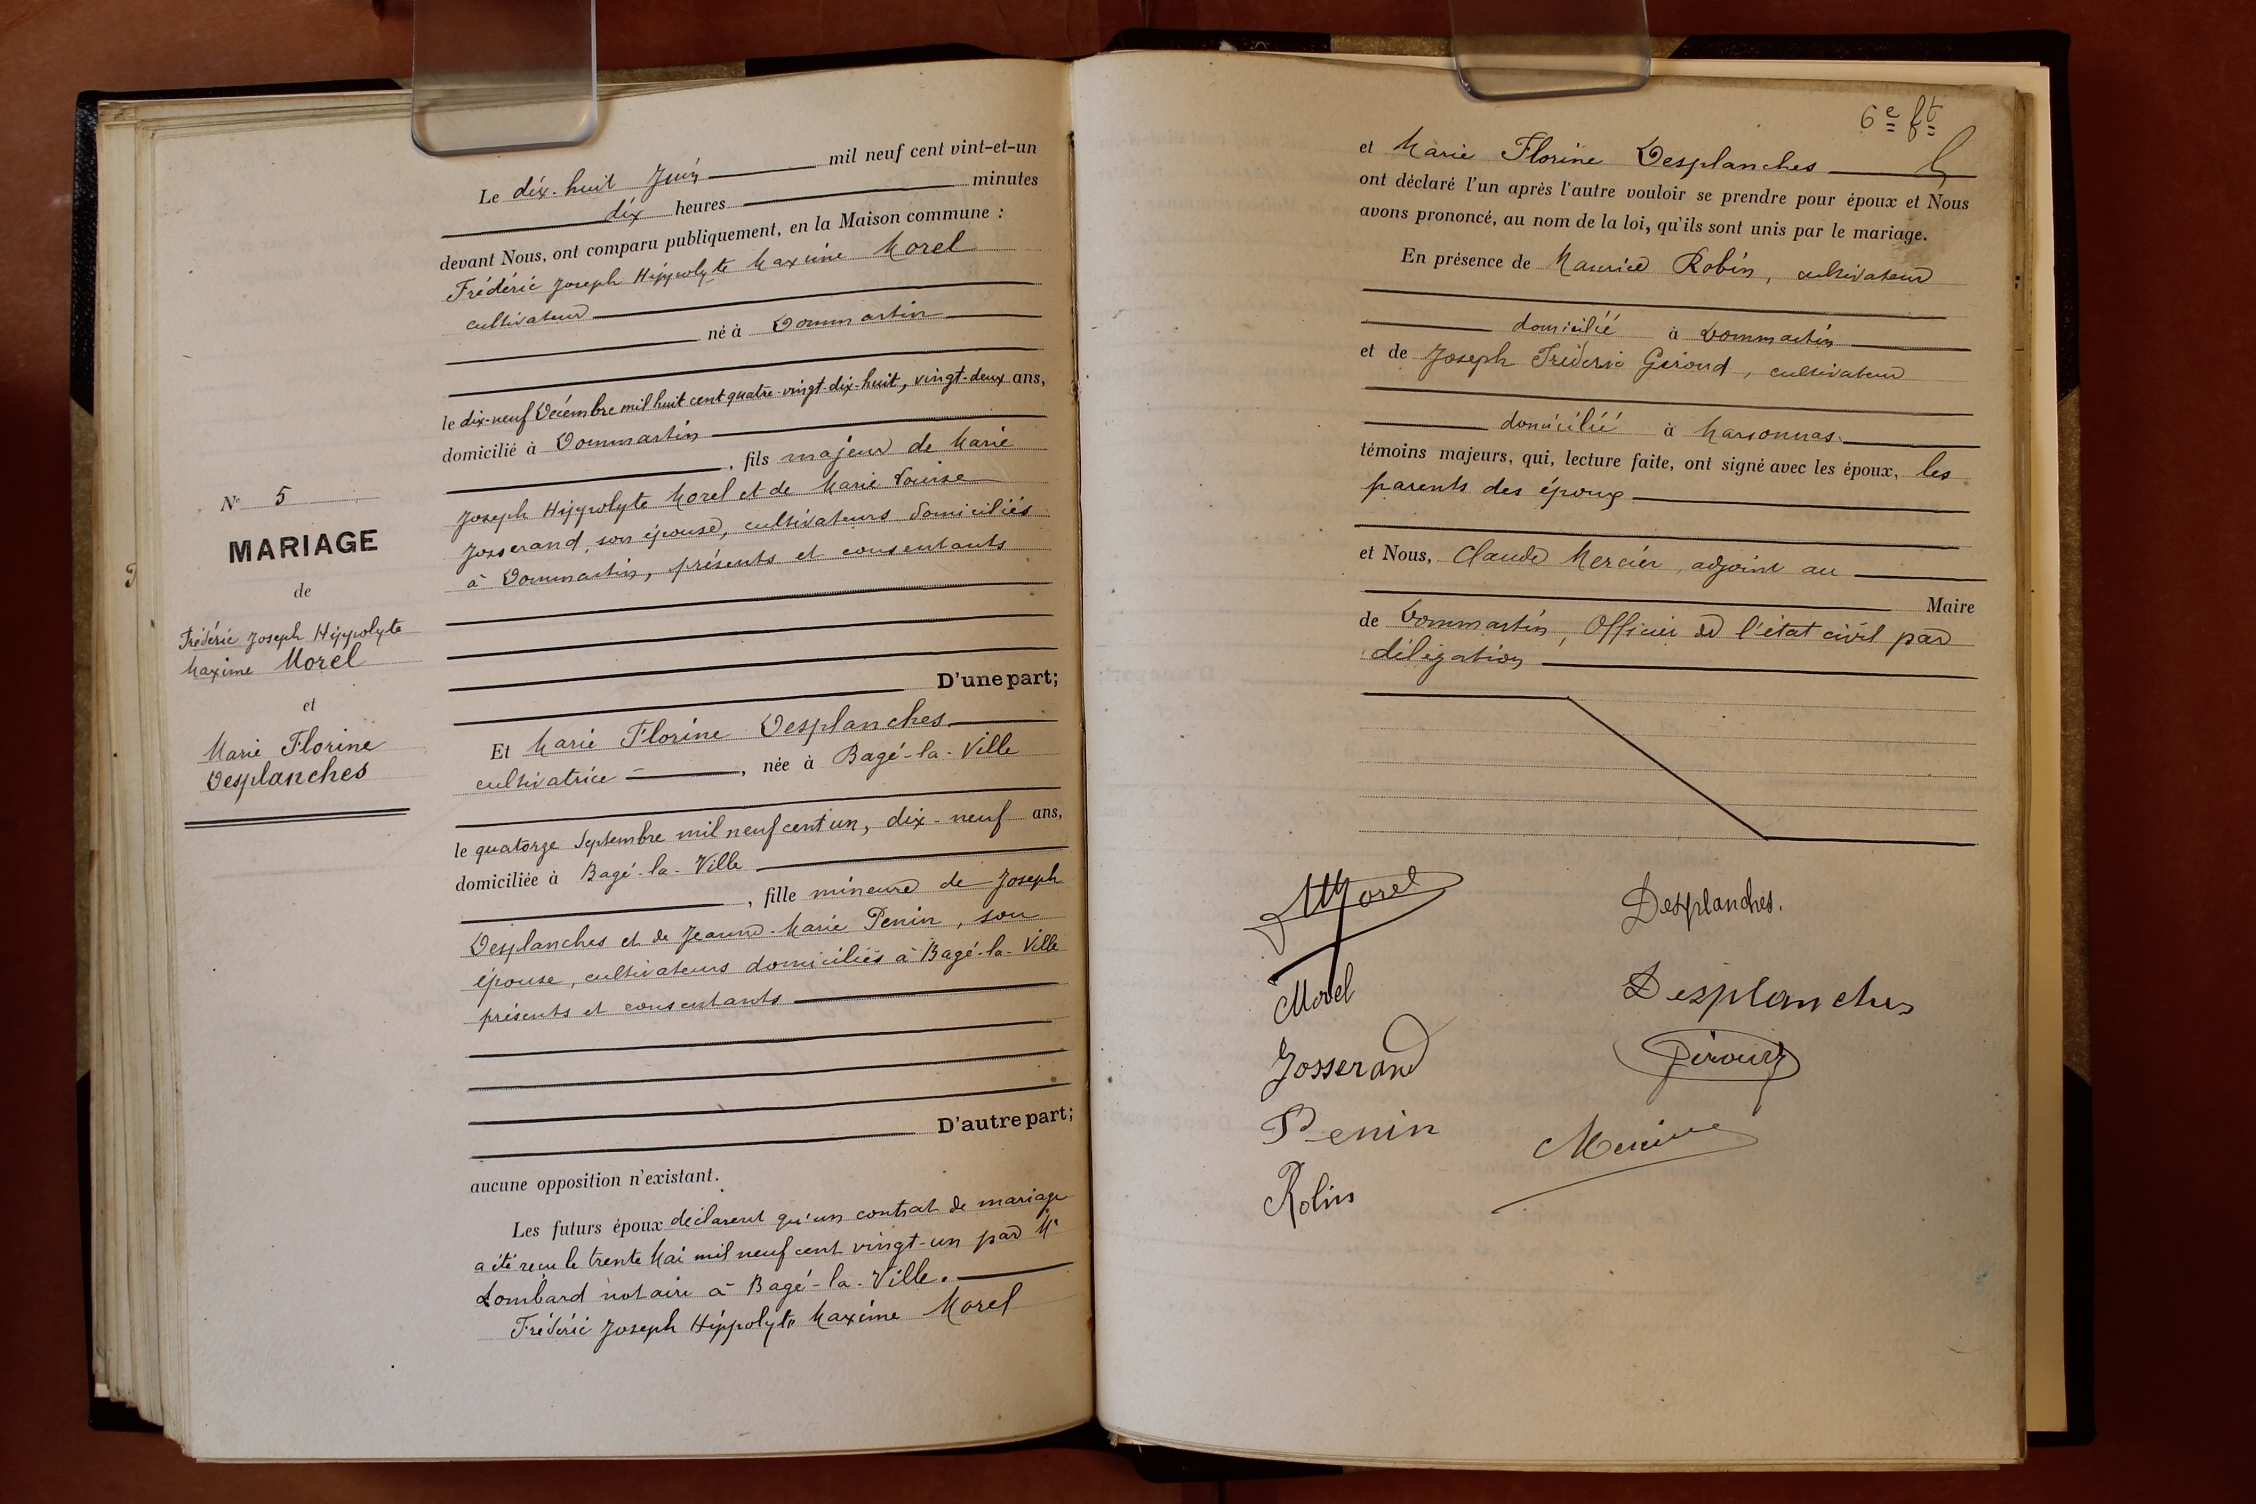 N° 5
MARIAGE
de
Frédéric Joseph Hippolyte
Maxime Morel
et
Marie Florine
Desplanches
Le dix-huit Juin mil neuf cent vint-et-un
dix heures minutes
devant Nous, ont comparu publiquement, en la Maison commune :
Frédéric Joseph Hippolyte Maxime Morel
cultivateur
né à Dommartin
le dix-neuf Décembre mil huit cent quatre-vingt-dix-huit, vingt-deux ans,
domicilié à Dommartin
, fils majeur de Marie
Joseph Hippolyte Morel et de Marie Louise
Josserand, son épouse, cultivateurs domiciliés
à Dommartin, présents et consentants
D'une part;
Et Marie Florine Desplanches
cultivatrice , née à Bagé-la-Ville
le quatorze Septembre mil neuf cent un, dix-neuf ans,
domiciliée à Bagé-la-Ville
, fille mineure de Joseph
Desplanches et de Jeanne-Marie Penin, son
épouse, cultivateurs domiciliés à Bagé-la-Ville
présents et consentants
D'autre part;
aucune opposition n'existant.
Les futurs époux déclarent qu'un contrat de mariage
a été reçu le trente Mai mil neuf cent vingt-un par Me
Lombard notaire à Bagé-la-Ville.
Frédéric Joseph Hippolyte Maxime Morel
6e ft
et Marie Florine Desplanches
ont déclaré l'un après l'autre vouloir se prendre pour époux et Nous
avons prononcé, au nom de la loi, qu'ils sont unis par le mariage.
En présence de Maurice Robin, cultivateur
domicilié à Dommartin
et de Joseph Fréderic Géroud, cultivateur
domicilié à Marsonnas
témoins majeurs, qui, lecture faite, ont signé avec les époux, les
parents des époux
et Nous, Claude Mercier, adjoint au
Maire
de Dommartin, Officier de l'état civil par
délégation
Morel
Desplanches.
Morel
Desplanches
Josserand
Penin
Robin